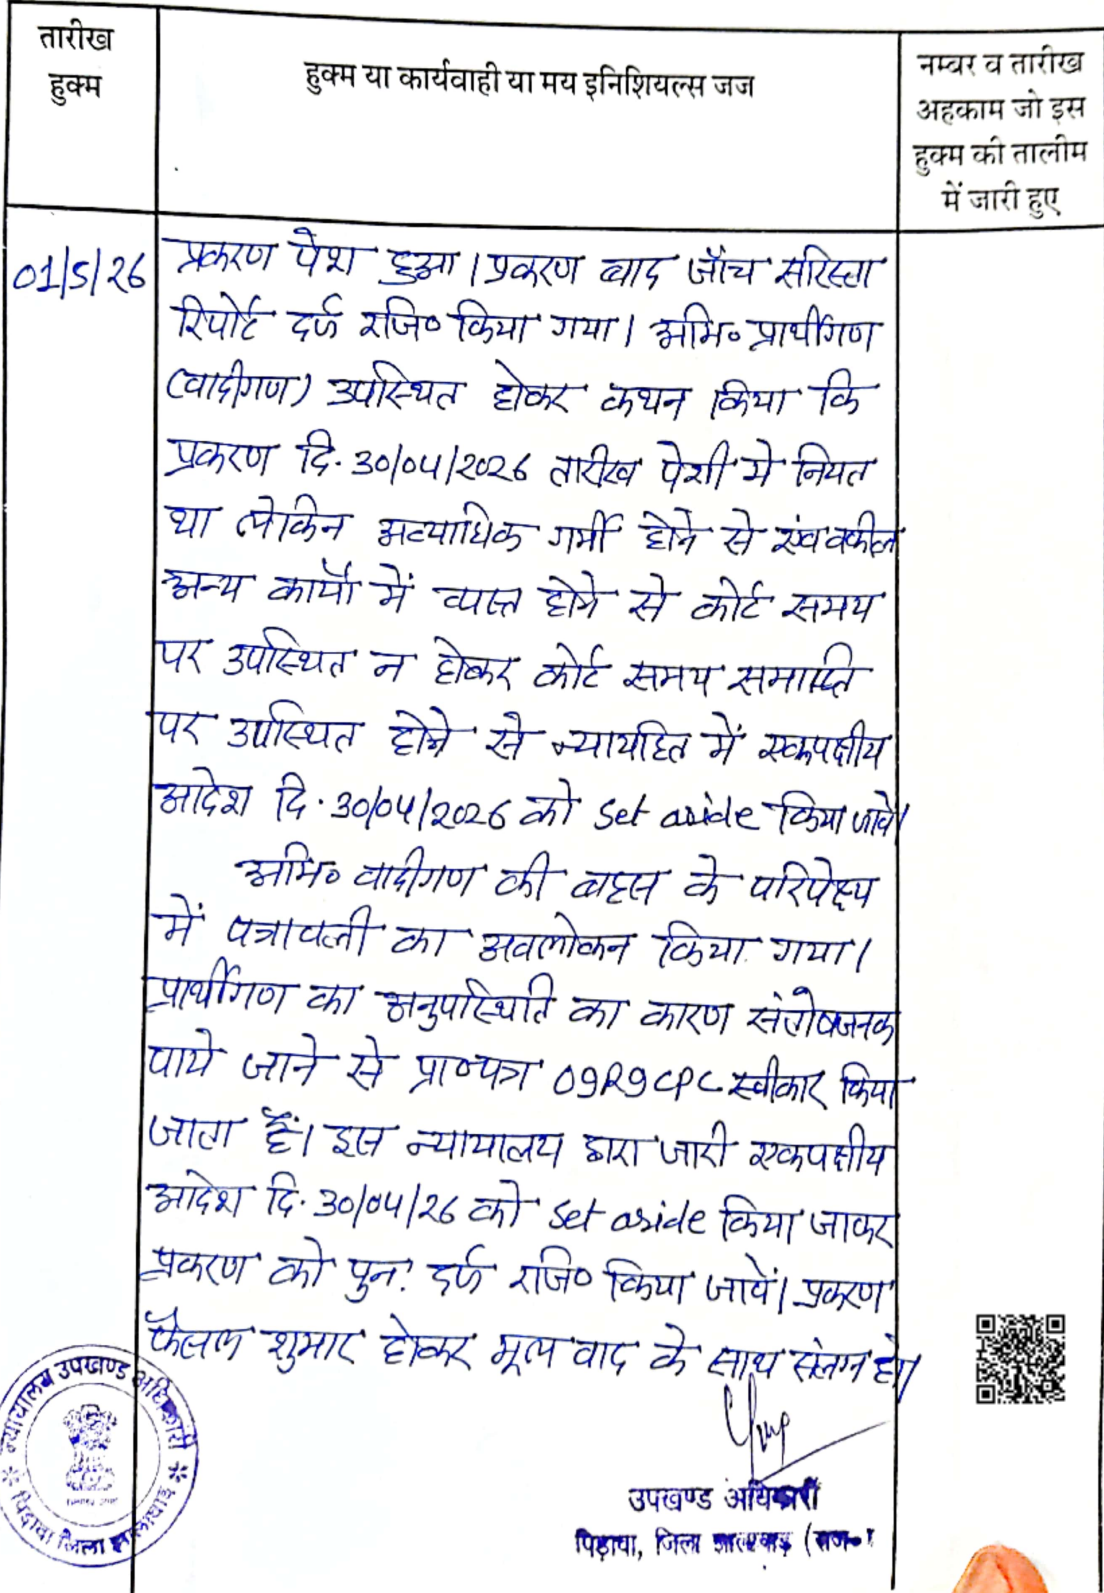 तारीख
हुक्म
हुक्म या कार्यवाही या मय इनिशियल्स जज
नम्बर व तारीख
अहकाम जो इस
हुक्म की तालीम
में जारी हुए
01/5/26
प्रकरण पेश हुआ। प्रकरण बाद जाँच सरिस्ता
रिपोर्ट दर्ज रजि० किया गया। अभि० प्रार्थीगण
(वादीगण) उपस्थित होकर कथन किया कि
प्रकरण दि. 30/04/2026 तारीख पेशी में नियत
था लेकिन अत्याधिक गर्मी होने से एंव वकील
अन्य कार्यों में व्यस्त होने से कोर्ट समय
पर उपस्थित न होकर कोर्ट समय समाप्ति
पर उपस्थित होने से न्यायहित में एकपक्षीय
आदेश दि. 30/04/2026 को set aside किया जावे।
अभि० वादीगण की बहस के परिपेक्ष्य
में पत्रावली का अवलोकन किया गया।
प्रार्थीगण का अनुपस्थिति का कारण संतोषजनक
पाये जाने से प्रा०पत्र 09R9CPC स्वीकार किया
जाता हैं। इस न्यायालय द्वारा जारी एकपक्षीय
आदेश दि. 30/04/26 को set aside किया जाकर
प्रकरण को पुन: दर्ज रजि० किया जावें। प्रकरण
फैसल शुमार होकर मूल वाद के साथ संलग्न हो।
न्यायालय उपखण्ड अधिकारी
पिड़ावा जिला झालावाड़
उपखण्ड अधिकारी
पिड़ावा, जिला झालावाड़ (राज०)